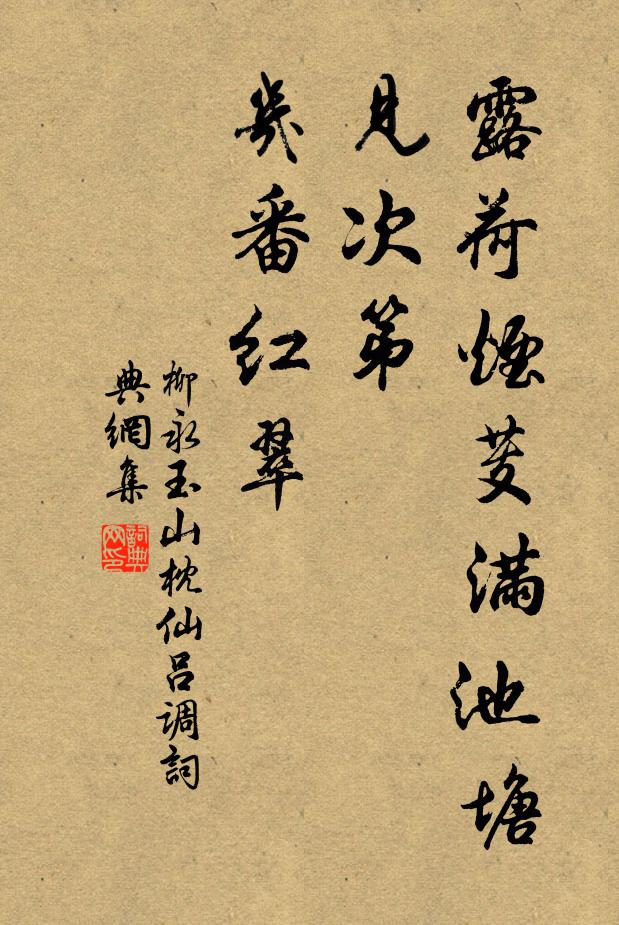 露荷煙芰满池塘
見次第
幾番红翠
柳永玉山枕仙吕调詞
典網集
詞典
网印